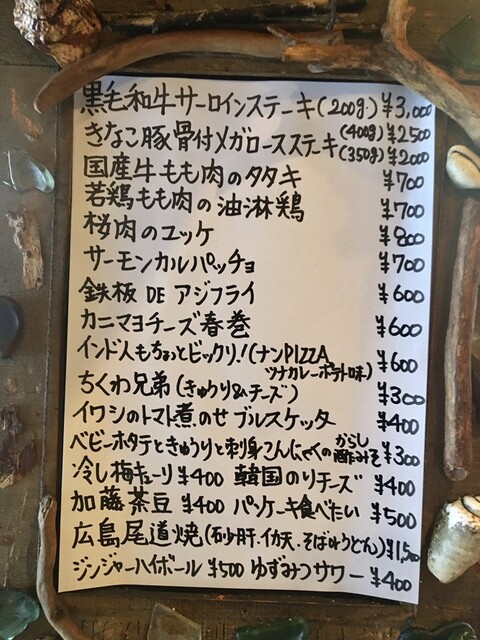 黒毛和牛サーロインステーキ(200g) ¥3,000
きなこ豚骨付メガロースステーキ(400g)¥2500
(350g)¥2000
国産牛もも肉のタタキ ¥700
若鶏もも肉の油淋鶏 ¥700
桜肉のユッケ ¥800
サーモンカルパッチョ ¥700
鉄板DEアジフライ ¥600
カニマヨチーズ春巻 ¥600
インド人もちょっとビックリ!(ナンPIZZA
ツナカレーポテト味) ¥600
ちくわ兄弟(きゅうり&チーズ) ¥300
イワシのトマト煮のせブルスケッタ ¥400
ベビーホタテときゅうりと刺身こんにゃくのからし酢みそ ¥300
冷し梅キューリ ¥400 韓国のりチーズ ¥400
加藤茶豆 ¥400 パンケーキ食べたい ¥500
広島尾道焼(砂肝.イカ天.そばorうどん)¥1,500
ジンジャーハイボール ¥500 ゆずみつサワー ¥400